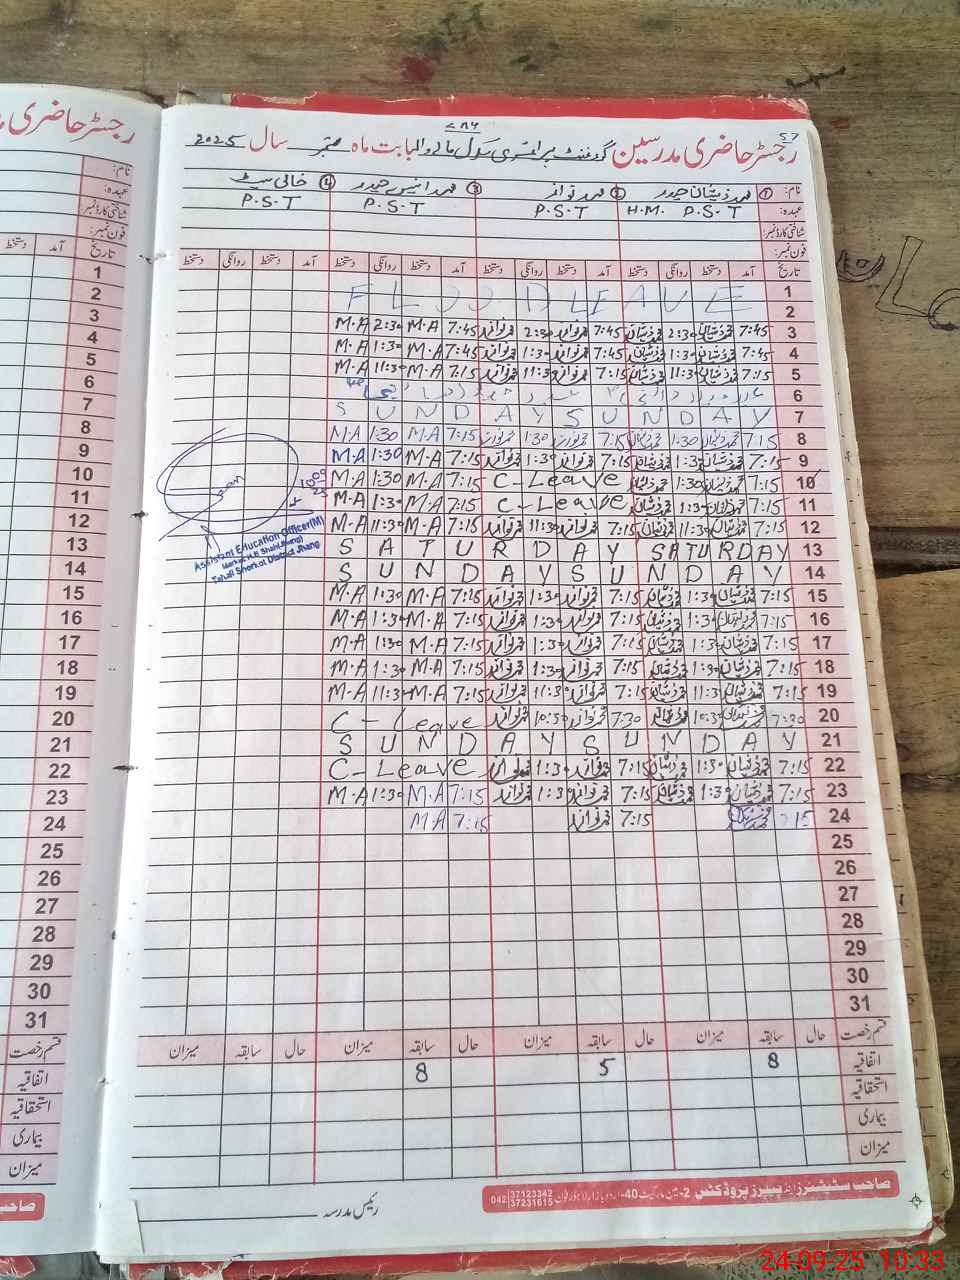 ۷۸۶
57
رجسٹر حاضری مدرسین گورنمنٹ پرائمری سکول مالے والا بابت ماہ ستمبر سال 2025
نام: ① محمد ذیشان حیدر ② محمد نواز ③ محمد انیس حیدر ④ خالی سیٹ
عہدہ: H.M. P.S.T P.S.T P.S.T P.S.T
شناختی کارڈ نمبر:
فون نمبر:
تاریخ آمد دستخط روانگی دستخط آمد دستخط روانگی دستخط آمد دستخط روانگی دستخط آمد دستخط
1 FLOOD LEAVE
2
3 7:45 محمد ذیشان 2:30 محمد ذیشان 7:45 محمد نواز 2:30 محمد نواز 7:45 M.A 2:30 M.A
4 7:45 محمد ذیشان 1:30 محمد ذیشان 7:45 محمد نواز 1:30 محمد نواز 7:45 M.A 1:30 M.A
5 7:15 محمد ذیشان 11:30 محمد ذیشان 7:15 محمد نواز 11:30 محمد نواز 7:15 M.A 11:30 M.A
6
7 SUNDAY SUNDAY
8 7:15 محمد ذیشان 1:30 محمد ذیشان 7:15 محمد نواز 1:30 محمد نواز 7:15 M.A 1:30 M.A
9 7:15 محمد ذیشان 1:30 محمد ذیشان 7:15 محمد نواز 1:30 محمد نواز 7:15 M.A 1:30 M.A
10 7:15 محمد ذیشان 1:30 محمد ذیشان C-Leave 7:15 M.A 1:30 M.A
11 7:15 محمد ذیشان 1:30 محمد ذیشان C-Leave 7:15 M.A 1:30 M.A
12 7:15 محمد ذیشان 11:30 محمد ذیشان 7:15 محمد نواز 11:30 محمد نواز 7:15 M.A 11:30 M.A
Assistant Education Officer(M)
Tehsil Shorkot District Jhang
13 SATURDAY SATURDAY
14 SUNDAY SUNDAY
15 7:15 محمد ذیشان 1:30 محمد ذیشان 7:15 محمد نواز 1:30 محمد نواز 7:15 M.A 1:30 M.A
16 7:15 محمد ذیشان 1:30 محمد ذیشان 7:15 محمد نواز 1:30 محمد نواز 7:15 M.A 1:30 M.A
17 7:15 محمد ذیشان 1:30 محمد ذیشان 7:15 محمد نواز 1:30 محمد نواز 7:15 M.A 1:30 M.A
18 7:15 محمد ذیشان 1:30 محمد ذیشان 7:15 محمد نواز 1:30 محمد نواز 7:15 M.A 1:30 M.A
19 7:15 محمد ذیشان 11:30 محمد ذیشان 7:15 محمد نواز 11:30 محمد نواز 7:15 M.A 11:30 M.A
20 7:30 محمد ذیشان 10:30 محمد ذیشان 7:30 محمد نواز 10:30 محمد نواز C-Leave
21 SUNDAY SUNDAY
22 7:15 محمد ذیشان 1:30 محمد ذیشان 7:15 محمد نواز 1:30 محمد نواز C-Leave
23 7:15 محمد ذیشان 1:30 محمد ذیشان 7:15 محمد نواز 1:30 محمد نواز 7:15 M.A 1:30 M.A
24 7:15 7:15 محمد نواز 7:15 M.A
25
26
27
28
29
30
31
قسم رخصت حال سابقہ میزان حال سابقہ میزان حال سابقہ میزان حال سابقہ میزان
اتفاقیہ 8 5 8
استحقاقیہ
بیماری
میزان
رئیس مدرسہ
صاحب سٹیشنرز اینڈ پیپرز پروڈکٹس
042 37123342 37231615
24-09-25 10:33
رجسٹر حاضری
نام:
عہدہ:
شناختی کارڈ نمبر
فون نمبر:
تاریخ آمد دستخط
1
2
3
4
5
6
7
8
9
10
11
12
13
14
15
16
17
18
19
20
21
22
23
24
25
26
27
28
29
30
31
قسم رخصت
اتفاقیہ
استحقاقیہ
بیماری
میزان